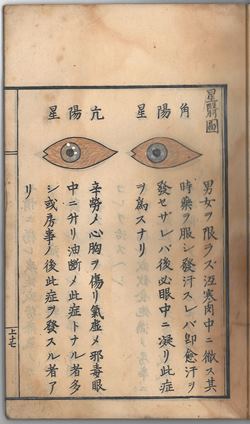 星翳圖
角陽星
男女ヲ限ラズ沍寒肉中ニ徹ス其
時藥ヲ服シ發汗スレバ卽愈汗ヲ
發セザレバ後必眼中ニ凝リ此症
ヲ為スナリ
亢陽星
辛勞乄心胸ヲ傷リ氣虛乄邪毒眼
中ニ升リ油斷乄此症トナル者多
シ或房事ノ後此症ヲ發スル者ア
リ
上十七